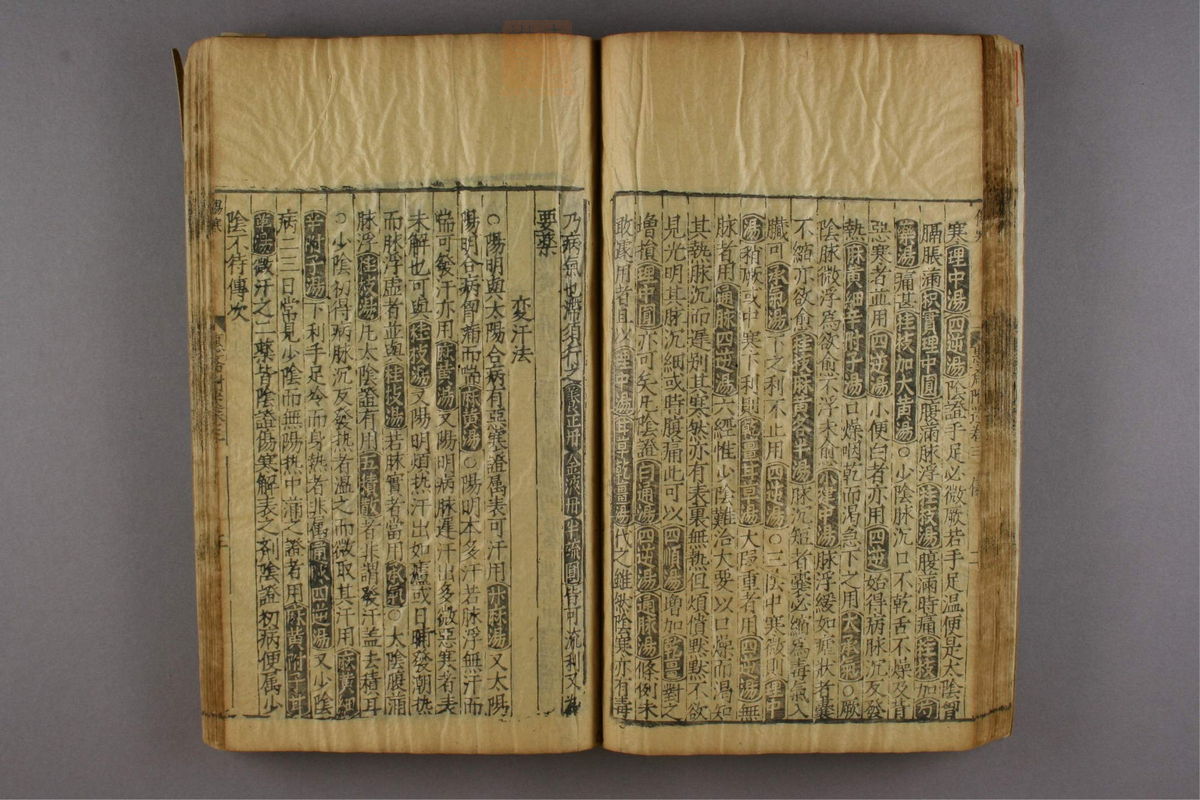 寒理中湯四逆湯陰證手足必微厥若手足温便是太陰曾
膈脹滿枳實理中圓腹滿脉浮桂枝湯腹滿時痛桂枝加芍
藥湯痛甚桂枝加大黄湯○少陰脉沉口不乾舌不燥及背
惡寒者並用四逆湯小便白者亦用四逆始得病脉沉反發
熱麻黄細辛附子湯口燥咽乾而渴急下之用大承氣○厥
陰脉微浮為欲愈不浮未愈小建中湯脉浮緩如瘧狀者囊
不縮亦欲愈桂枝麻黄各半湯脉沉短者囊必縮為毒氣入
臓可承氣湯下之利不止用四逆湯○三陰中寒微則理中
湯稍厥或中寒下利則乾薑甘草湯大段重者用四逆湯無
脉者用通脉四逆湯六經惟少陰難治大要以口燥而渴知
其熱脉沉而遲別其寒然亦有表裏無熱但煩憒黙黙不欲
見光明其脉沉細或時腹痛此可以四順湯增加乾薑對之
增損理中圓亦可矣凡陰證白通湯四逆湯通脉湯條例未
敢疎用者且以理中湯甘草乾薑湯代之雖然陰寒亦有毒
乃病氣也滯須行之養正丹金液丹半硫圓皆可流利又為
要藥
変汗法
○陽明與太陽合病有惡寒證属表可汗用升麻湯又太陽
陽明合病胷滿而喘麻黄湯○陽明本多汗若脉浮無汗而
喘可發汗亦用麻黄湯又陽明病脉遲汗出多微惡寒者表
未解也可與桂枝湯又陽明煩热汗出如瘧或日晡發潮热
而脉浮虚者並與桂枝湯若脉實者當用承氣○太陰腹滿
脉浮桂枝湯凡太陰證有用五積散者非謂發汗盖去積耳
○少陰初得病脉沉反發热者温之而微取其汗用麻黄細
辛附子湯下利手足冷而身熱者非四逆湯又少陰
病二三日常見少陰而無陽热中滿之證者用麻黄附子甘
草湯微汗之二藥皆陰證傷寒解表之剤陰證初病便属少
陰不待傳次